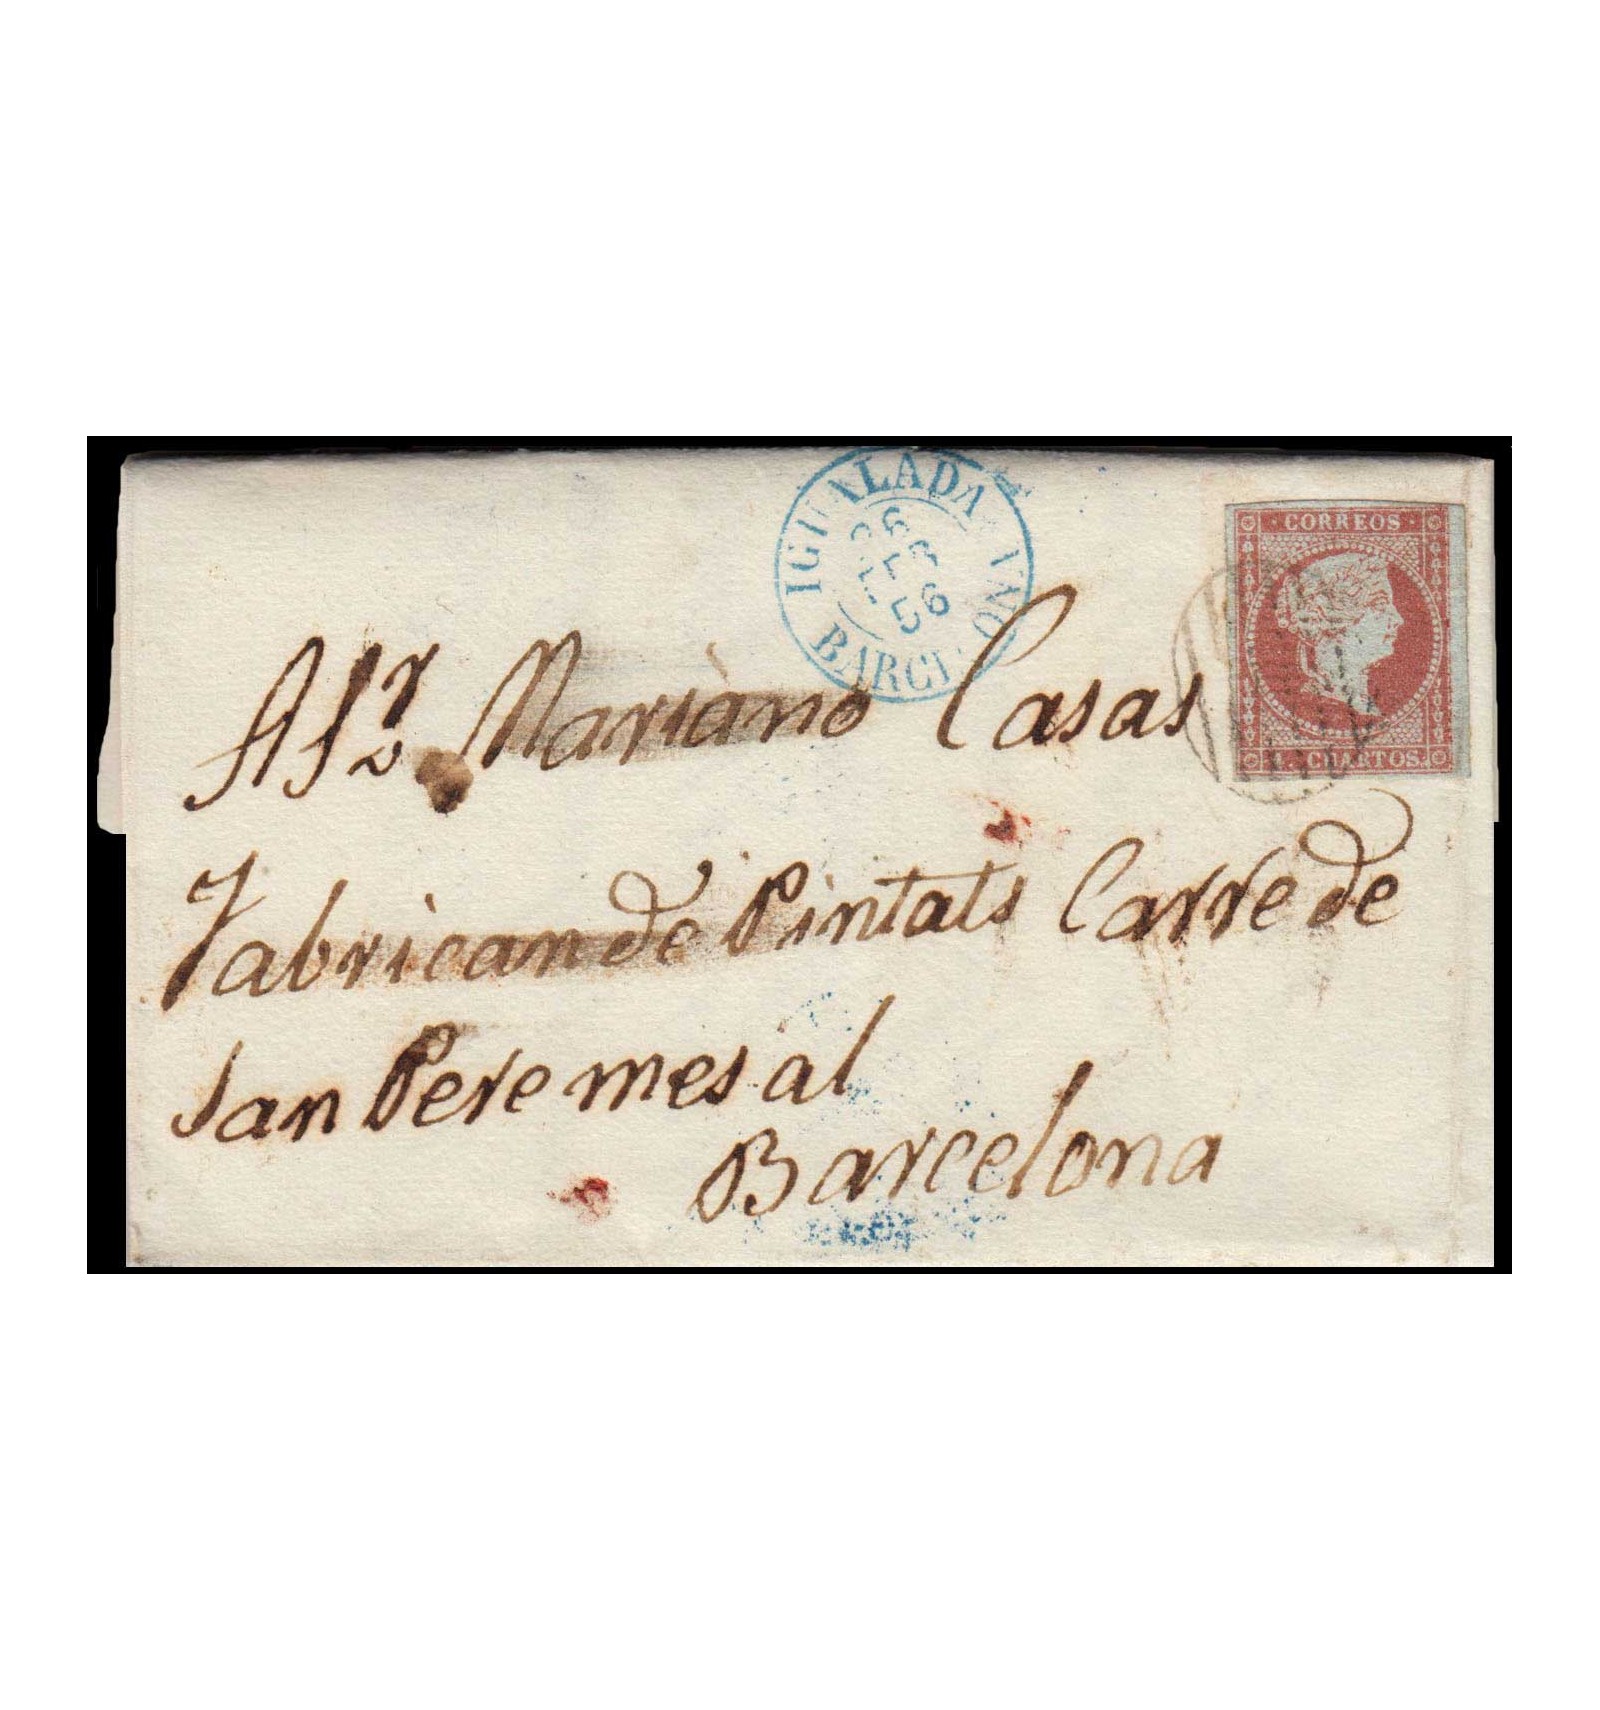 IGUALADA
26
56
BARCNA
CORREOS
CUARTOS.
A Sr. Mariano Casas
Fabrican de Pintats Carre de
San Pere mes al
Barcelona